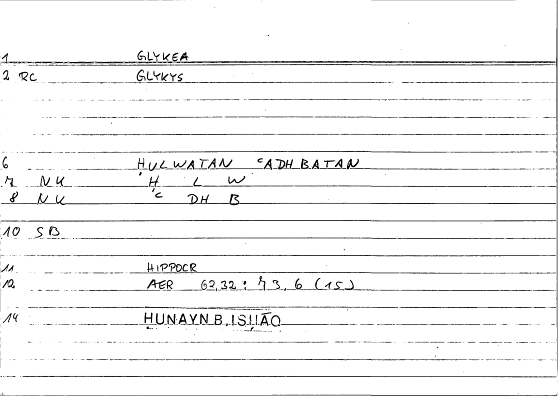 1 GLYKEA
2 RC GLYKYS
6 ḤULWATAN ʿADHBATAN
7 NK Ḥ L W
8 NK ʿ DH B
10 SB
11 HIPPOCR
12 AER 62,32 : 73,6 (15)
14 ḤUNAYN B. ISḤĀQ